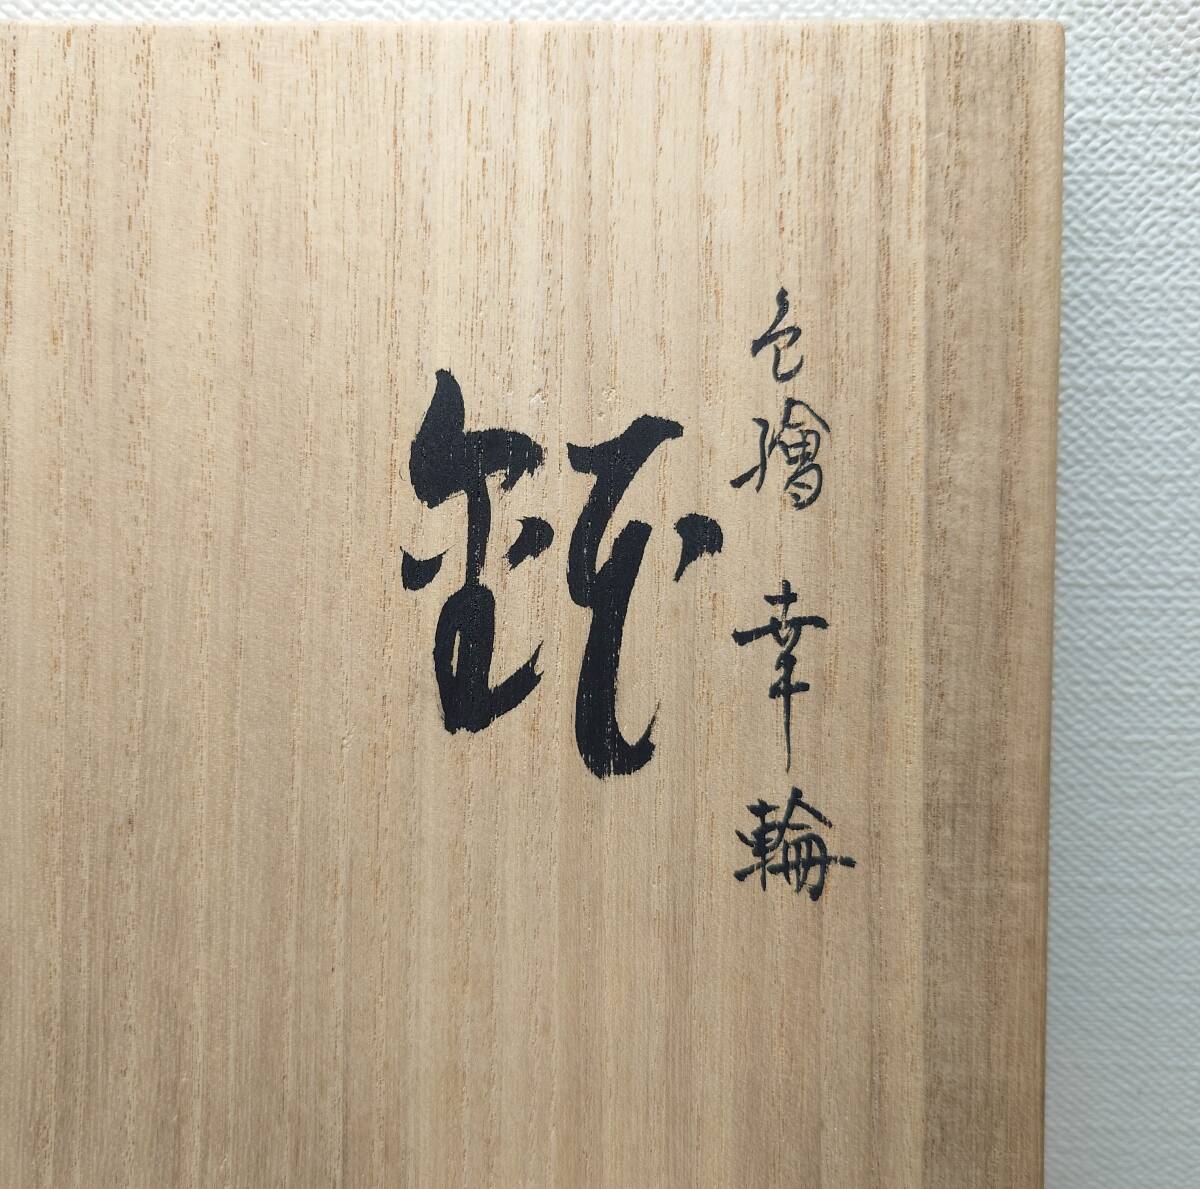 色繪 幸輪
鉢